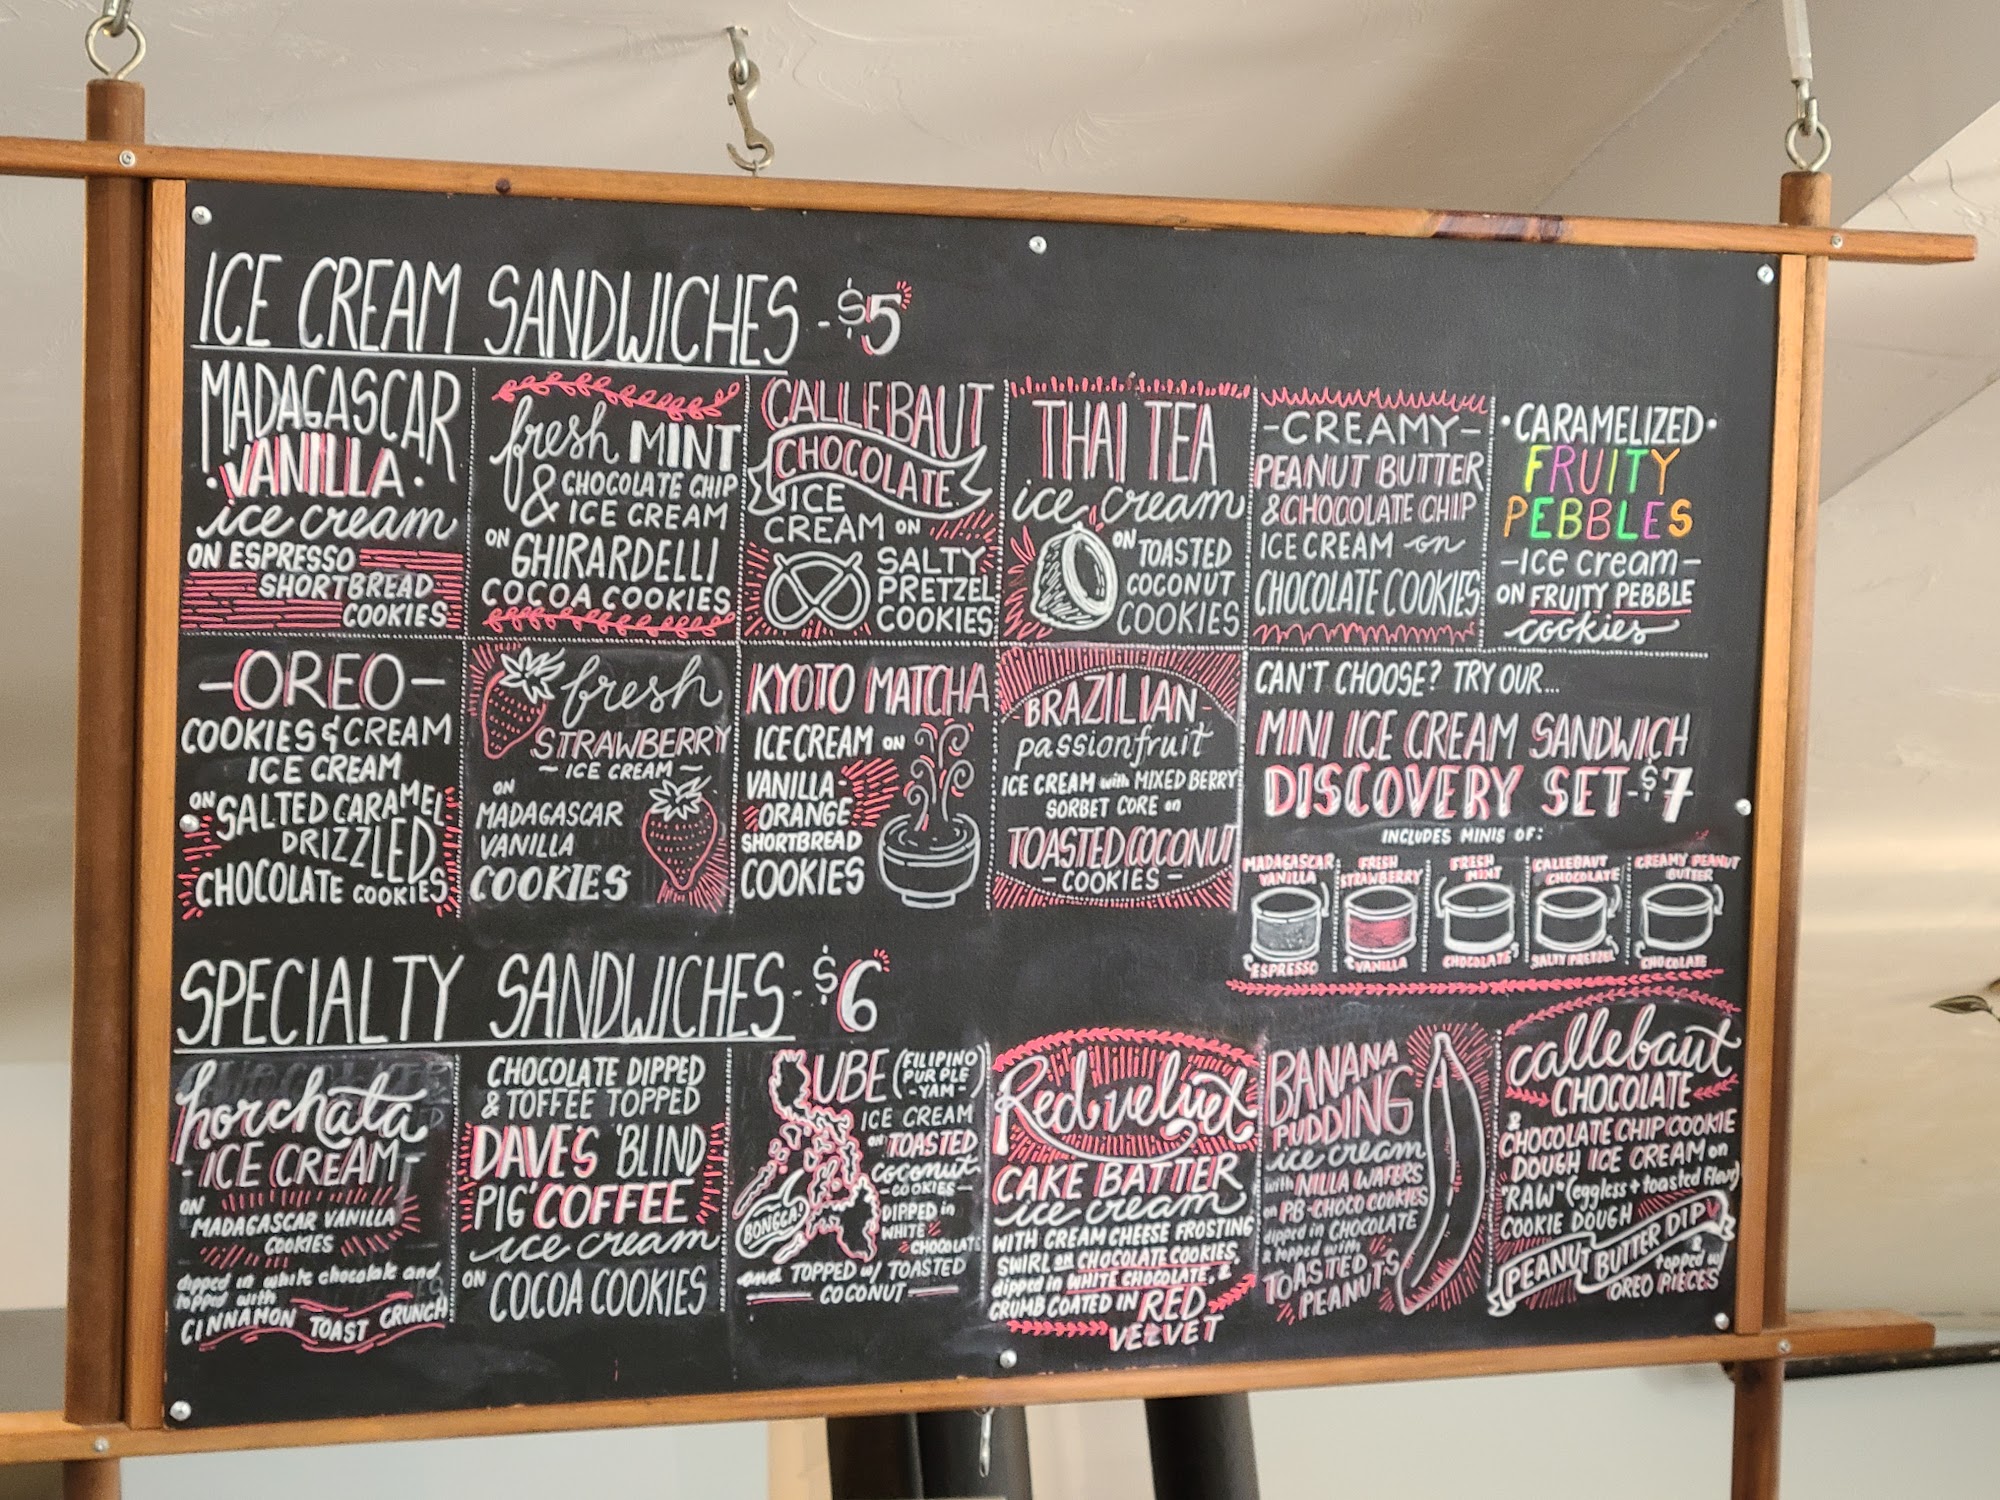 ICE CREAM SANDWICHES - $5
MADAGASCAR
·VANILLA·
ice cream
ON ESPRESSO
SHORTBREAD
COOKIES
fresh MINT
& CHOCOLATE CHIP
ICE CREAM
ON GHIRARDELLI
COCOA COOKIES
CALLEBAUT
CHOCOLATE
ICE
CREAM ON
SALTY
PRETZEL
COOKIES
THAI TEA
ice cream
ON TOASTED
COCONUT
COOKIES
-CREAMY-
PEANUT BUTTER
& CHOCOLATE CHIP
ICE CREAM on
CHOCOLATE COOKIES
·CARAMELIZED·
FRUITY
PEBBLES
-ice cream-
ON FRUITY PEBBLE
cookies
-OREO-
COOKIES & CREAM
ICE CREAM
ON SALTED CARAMEL
DRIZZLED
CHOCOLATE COOKIES
fresh
STRAWBERRY
~ICE CREAM~
ON
MADAGASCAR
VANILLA
COOKIES
KYOTO MATCHA
ICE CREAM ON
VANILLA-
ORANGE
SHORTBREAD
COOKIES
-BRAZILIAN-
passionfruit
ICE CREAM with MIXED BERRY
SORBET CORE on
TOASTED COCONUT
-COOKIES-
CAN'T CHOOSE? TRY OUR...
MINI ICE CREAM SANDWICH
DISCOVERY SET-$7
INCLUDES MINIS OF:
MADAGASCAR
VANILLA
ESPRESSO
FRESH
STRAWBERRY
VANILLA
FRESH
MINT
CHOCOLATE
CALLEBAUT
CHOCOLATE
SALTY PRETZEL
CREAMY PEANUT
BUTTER
CHOCOLATE
SPECIALTY SANDWICHES - $6
horchata
-ICE CREAM-
ON
MADAGASCAR VANILLA
COOKIES
dipped in white chocolate and
topped with
CINNAMON TOAST CRUNCH
CHOCOLATE DIPPED
& TOFFEE TOPPED
DAVE'S 'BLIND
PIG' COFFEE
ice cream
ON COCOA COOKIES
UBE (FILIPINO
PURPLE
-YAM-)
ICE CREAM
on TOASTED
coconut
-COOKIES-
DIPPED in
WHITE
CHOCOLATE
BONGGA!
and TOPPED w/ TOASTED
COCONUT
Red velvet
CAKE BATTER
ice cream
WITH CREAM CHEESE FROSTING
SWIRL on CHOCOLATE COOKIES,
dipped in WHITE CHOCOLATE, &
CRUMB COATED IN RED
VELVET
BANANA
PUDDING
ice cream
with NILLA WAFERS
on PB-CHOCO COOKIES
dipped in CHOCOLATE
& topped with
TOASTED
PEANUTS
callebaut
CHOCOLATE
&
CHOCOLATE CHIP COOKIE
DOUGH ICE CREAM on
"RAW" (eggless + toasted flour)
COOKIE DOUGH
PEANUT BUTTER DIP
& topped w/
OREO PIECES